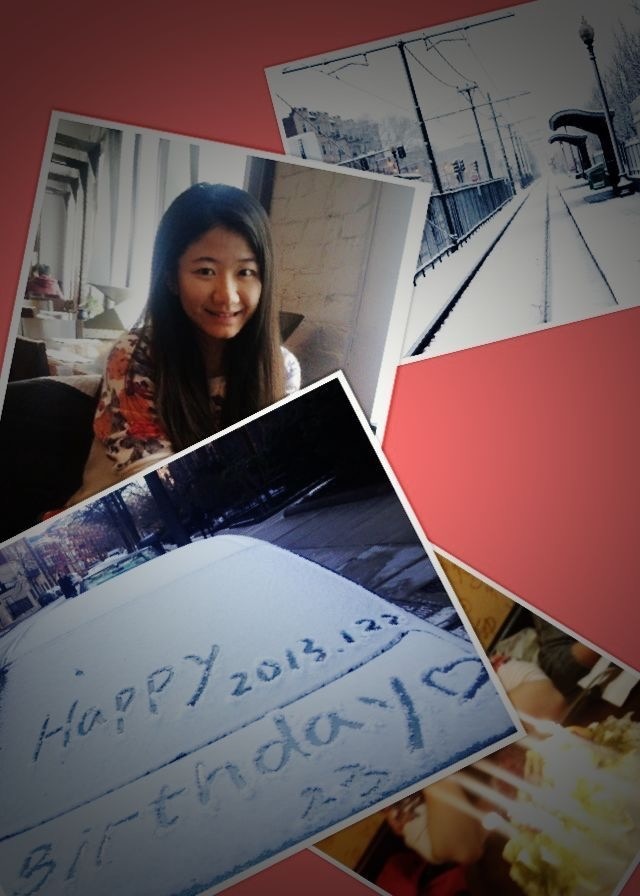 Happy 2013.1.22
Birthday ♡
223